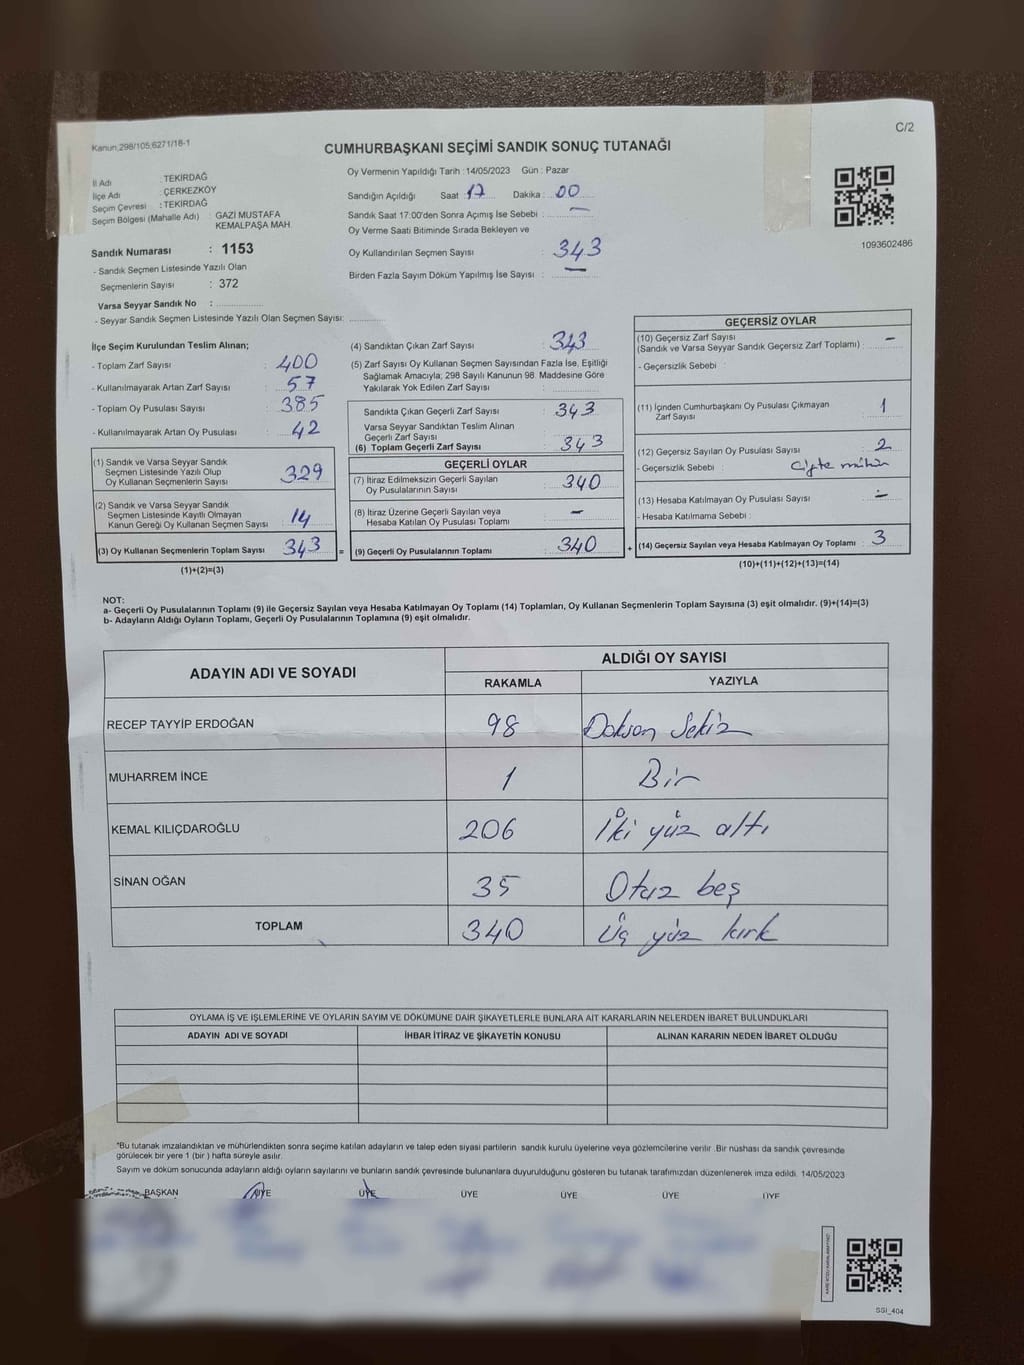 C/2
Kanun,298/105;6271/18-1
CUMHURBAŞKANI SEÇİMİ SANDIK SONUÇ TUTANAĞI
İl Adı : TEKİRDAĞ
İlçe Adı : ÇERKEZKÖY
Seçim Çevresi : TEKİRDAĞ
Seçim Bölgesi (Mahalle Adı) : GAZİ MUSTAFA
KEMALPAŞA MAH.
Sandık Numarası : 1153
- Sandık Seçmen Listesinde Yazılı Olan
Seçmenlerin Sayısı : 372
Varsa Seyyar Sandık No :
- Seyyar Sandık Seçmen Listesinde Yazılı Olan Seçmen Sayısı:
Oy Vermenin Yapıldığı Tarih : 14/05/2023 Gün : Pazar
Sandığın Açıldığı Saat 17 Dakika : 00
Sandık Saat 17:00'den Sonra Açımış İse Sebebi : —
Oy Verme Saati Bitiminde Sırada Bekleyen ve
Oy Kullandırılan Seçmen Sayısı : 343
Birden Fazla Sayım Döküm Yapılmış İse Sayısı : —
1093602486
İlçe Seçim Kurulundan Teslim Alınan;
- Toplam Zarf Sayısı : 400
- Kullanılmayarak Artan Zarf Sayısı : 57
- Toplam Oy Pusulası Sayısı : 385
- Kullanılmayarak Artan Oy Pusulası : 42
(1) Sandık ve Varsa Seyyar Sandık
Seçmen Listesinde Yazılı Olup
Oy Kullanan Seçmenlerin Sayısı : 329
(2) Sandık ve Varsa Seyyar Sandık
Seçmen Listesinde Kayıtlı Olmayan
Kanun Gereği Oy Kullanan Seçmen Sayısı : 14
(3) Oy Kullanan Seçmenlerin Toplam Sayısı : 343 =
(1)+(2)=(3)
(4) Sandıktan Çıkan Zarf Sayısı : 343
(5) Zarf Sayısı Oy Kullanan Seçmen Sayısından Fazla İse, Eşitliği
Sağlamak Amacıyla; 298 Sayılı Kanunun 98. Maddesine Göre
Yakılarak Yok Edilen Zarf Sayısı :
Sandıkta Çıkan Geçerli Zarf Sayısı : 343
Varsa Seyyar Sandıktan Teslim Alınan
Geçerli Zarf Sayısı :
(6) Toplam Geçerli Zarf Sayısı : 343
GEÇERLİ OYLAR
(7) İtiraz Edilmeksizin Geçerli Sayılan
Oy Pusulalarının Sayısı : 340
(8) İtiraz Üzerine Geçerli Sayılan veya
Hesaba Katılan Oy Pusulası Toplamı : —
(9) Geçerli Oy Pusulalarının Toplamı : 340 +
GEÇERSİZ OYLAR
(10) Geçersiz Zarf Sayısı
(Sandık ve Varsa Seyyar Sandık Geçersiz Zarf Toplamı) : —
- Geçersizlik Sebebi :
(11) İçinden Cumhurbaşkanı Oy Pusulası Çıkmayan
Zarf Sayısı : 1
(12) Geçersiz Sayılan Oy Pusulası Sayısı : 2
- Geçersizlik Sebebi : Çifte mühür
(13) Hesaba Katılmayan Oy Pusulası Sayısı : —
- Hesaba Katılmama Sebebi :
(14) Geçersiz Sayılan veya Hesaba Katılmayan Oy Toplamı : 3
(10)+(11)+(12)+(13)=(14)
NOT:
a- Geçerli Oy Pusulalarının Toplamı (9) ile Geçersiz Sayılan veya Hesaba Katılmayan Oy Toplamı (14) Toplamları, Oy Kullanan Seçmenlerin Toplam Sayısına (3) eşit olmalıdır. (9)+(14)=(3)
b- Adayların Aldığı Oyların Toplamı, Geçerli Oy Pusulalarının Toplamına (9) eşit olmalıdır.
ADAYIN ADI VE SOYADI ALDIĞI OY SAYISI
RAKAMLA YAZIYLA
RECEP TAYYİP ERDOĞAN 98 Doksan Sekiz
MUHARREM İNCE 1 Bir
KEMAL KILIÇDAROĞLU 206 İki yüz altı
SİNAN OĞAN 35 Otuz beş
TOPLAM 340 Üç yüz kırk
OYLAMA İŞ VE İŞLEMLERİNE VE OYLARIN SAYIM VE DÖKÜMÜNE DAİR ŞİKAYETLERLE BUNLARA AİT KARARLARIN NELERDEN İBARET BULUNDUKLARI
ADAYIN ADI VE SOYADI İHBAR İTİRAZ VE ŞİKAYETİN KONUSU ALINAN KARARIN NEDEN İBARET OLDUĞU
"Bu tutanak imzalandıktan ve mühürlendikten sonra seçime katılan adayların ve talep eden siyasi partilerin sandık kurulu üyelerine veya gözlemcilerine verilir .Bir nüshası da sandık çevresinde
görülecek bir yere 1 (bir ) hafta süreyle asılır.
Sayım ve döküm sonucunda adayların aldığı oyların sayılarını ve bunların sandık çevresinde bulunanlara duyurulduğunu gösteren bu tutanak tarafımızdan düzenlenerek imza edildi. 14/05/2023
BAŞKAN ÜYE ÜYE ÜYE ÜYE ÜYE ÜYE
SSI_404